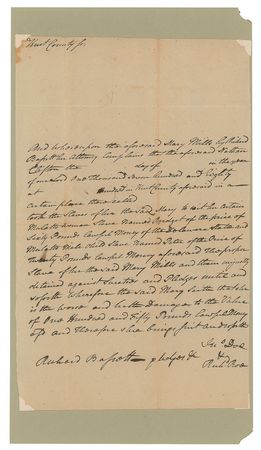 Kent County ss.
And whereupon the aforesaid Mary Mills by Richard
Bassett her Attorney Complains that the aforesaid Nathan
Clifton the day of in the year
of our Lord One thousand Seven hundred and Eighty
at Hundred in Kent County aforesaid in a
certain place there called
took the Slaves of her the said Mary to wit her certain
Mulatto woman Slave Named Bridget of the price of
Sixty Pounds Lawful Money of the Delaware State and
Mulatto Male child Slave Named Peter of the Price of
Twenty Pounds Lawful Money aforesaid the proper
Slaves of her the said Mary Mills and them unjustly
detained against Sureties and Pledges until and
so forth Wherefore the said Mary saith that she
is the worse and hath Damage to the Value
of One Hundred and Fifty Pounds Lawful Money
afd and Therefore she brings suit and so forth
Jno Doe
Richard Bassett pledges &c &
Richd Roe